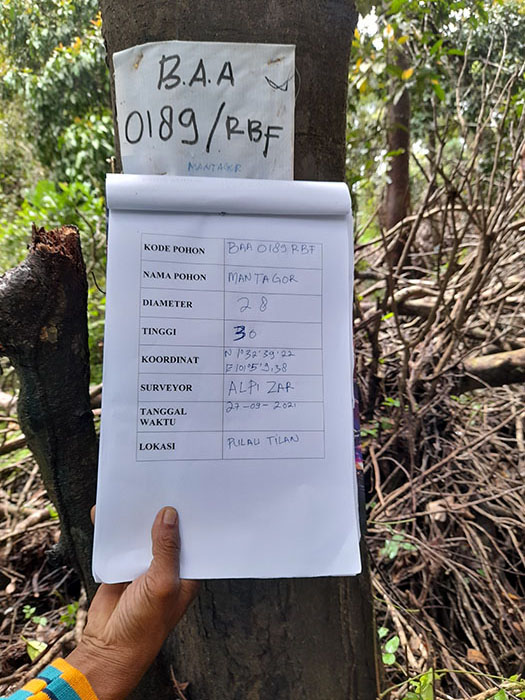 B.A.A
0189/RBF
MANTAGOR
KODE POHON BAA 0189 RBF
NAMA POHON MANTAGOR
DIAMETER 28
TINGGI 30
KOORDINAT N 1°32'39.22
E 101°5'9.38
SURVEYOR ALPI ZAR
TANGGAL 27-09-2021
WAKTU
LOKASI PULAU TILAN